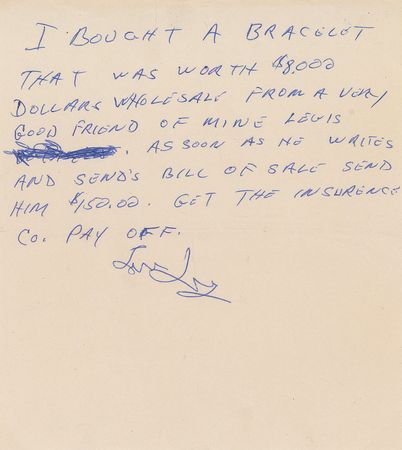 I BOUGHT A BRACELET
THAT WAS WORTH $8,000
DOLLARS WHOLESALE FROM A VERY
GOOD FRIEND OF MINE LEWIS
. AS SOON AS HE WRITES
AND SEND'S BILL OF SALE SEND
HIM $150.00. GET THE INSURENCE
CO. PAY OFF.
Love